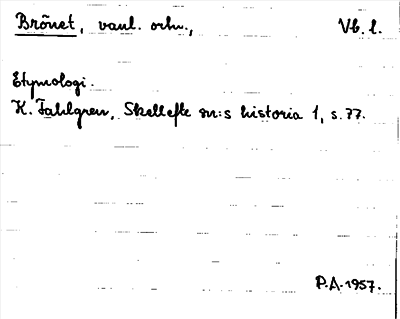 Brõnet, vanl. ortn., Vb. l.
Etymologi.
K. Fahlgren, Skellefte sn:s historia 1, s. 77.
P.A. 1957.